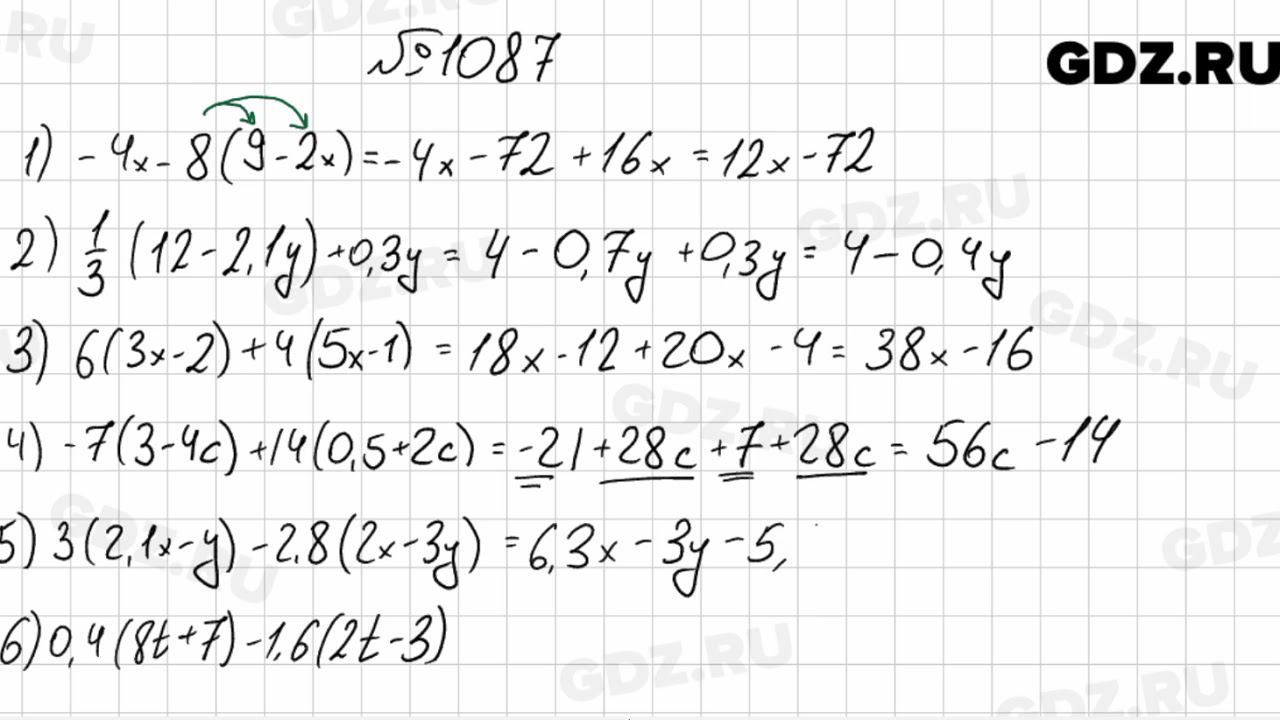 №1087
GDZ.RU
1) -4x-8(9-2x)=-4x-72+16x=12x-72
2) 1/3 (12-2,1y)+0,3y=4-0,7y+0,3y=4-0,4y
3) 6(3x-2)+4(5x-1)=18x-12+20x-4=38x-16
4) -7(3-4c)+14(0,5+2c)=-21+28c+7+28c=56c-14
5) 3(2,1x-y)-2,8(2x-3y)=6,3x-3y-5,
6) 0,4(8t+7)-1,6(2t-3)